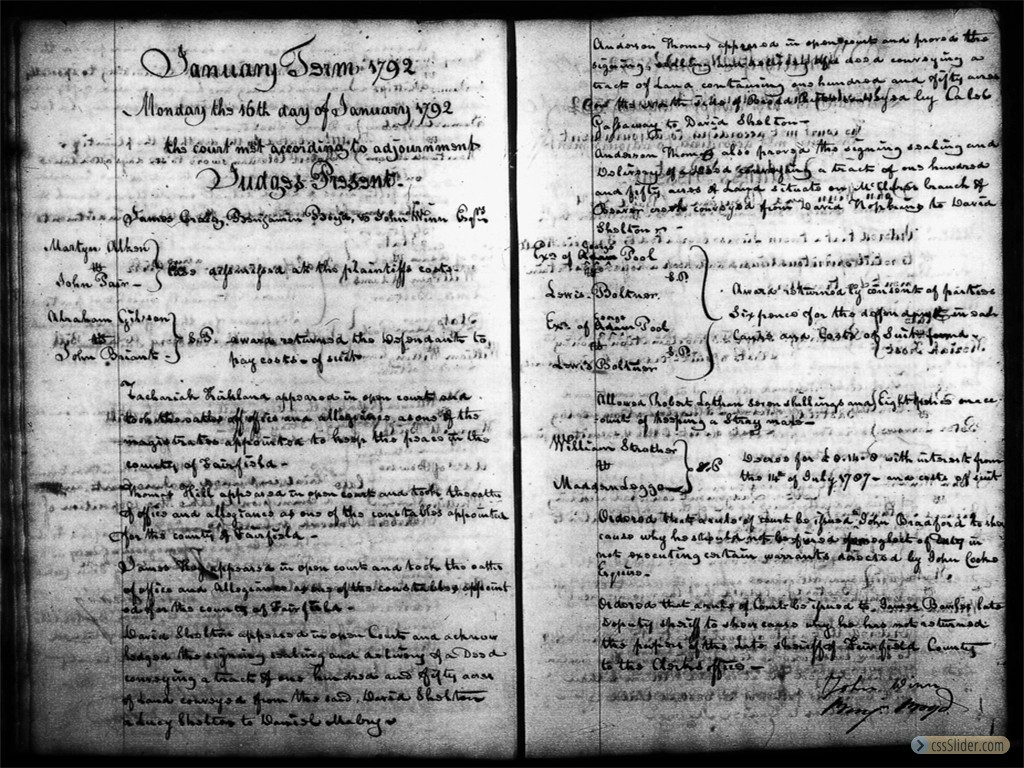 January Term 1792
Monday the 16th day of January 1792
the court met according to adjournment
Judges Present.
James Benjamin & John Winn Esqrs
Martyn Alken
vs
John Pair
at the plaintiffs costs.
Abraham Gibson
vs
John Briant
S.P. award returned the Defendants to
pay costs of suit
Zachariah Kirkland appeared in open court and
took the oaths of office and allegiance as one of the
magistrates appointed to keep the peace in the
county of Fairfield
Thomas Hill appeared in open court and took the oaths
of office and allegiance as one of the constables appointed
for the county of Fairfield
James appeared in open court and took the oaths
of office and Allegiance as one of the constables appoint
ed for the county of Fairfield
David Shelton appeared in open Court and acknow
ledged the signing sealing and delivery of a Deed
conveying a tract of one hundred and fifty acres
of Land conveyed from the said David Shelton
& Lucy Shelton to Daniel Mabry
Anderson Thomas appeared in open court and proved the
signing, sealing and delivery of a deed conveying a
tract of Land containing one hundred and fifty acres
on the side of conveyed by Caleb
Gassaway to David Shelton
Anderson Thomas also proved the signing sealing and
Delivery of a Deed conveying a tract of one hundred
and fifty acres of Land situate on branch of
Beaver creek conveyed from David Hopkins to David
Shelton
Exs of Adam Pool
vs
S.P.
Lewis Boltner
Exs of Adam Pool
vs
S.P.
Lewis Boltner
Award returned by consent of parties
Six pence for the defendant in each
Cause and Costs of Suit
Allowed Robert Lathan seven shillings and Eight pence on ac
count of keeping a Stray mare
William Strother
vs
Maddan Legge
S.P.
Decree for with interest from
the 14th of July 1787 and costs of suit
Ordered that writs of court be issued John Bradford to shew
cause why he should not be fined for neglect of Duty in
not executing certain warrants directed by John Cooke
Esquire
Ordered that a rule of Court be issued to James late
Deputy sheriff to shew cause why he has not returned
the papers of the late sheriff of Fairfield County
to the Clerks office
John Winn
Benj. Boyd
cssSlider.com